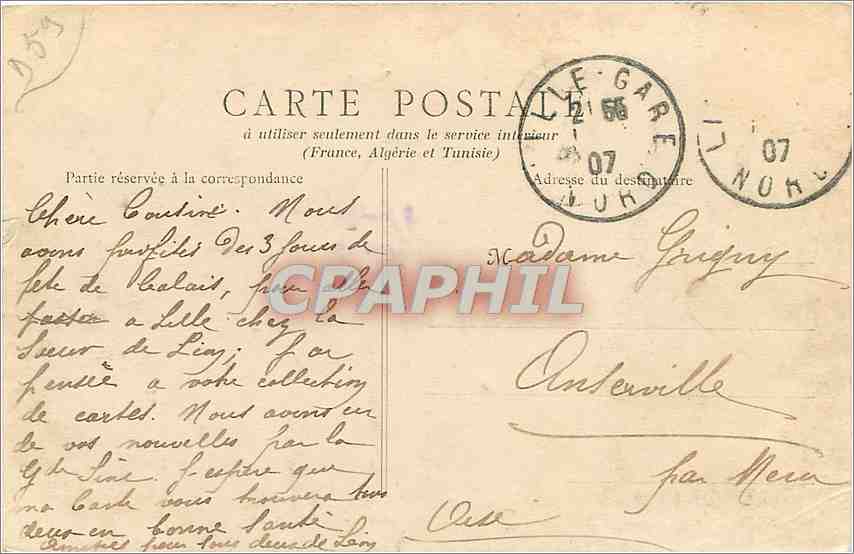 D59
CARTE POSTALE
à utiliser seulement dans le service intérieur
(France, Algérie et Tunisie)
Partie réservée à la correspondance
Adresse du destinataire
LILLE-GARE
07
NORD
LI
07
NORD
Chère Cousine. Nous
avons profités des 3 jours de
fête de Calais, pour aller
passer a Lille chez la
Sœur de Léon; j'ai
pensée a votre collection
de cartes. Nous avons eu
de vos nouvelles par la
J'espère que
ma Carte vous trouvera tous
deux en bonne Santé
Amitiés pour tous deux de Léon
Madame Grigny
Anserville
par Meru
Oise
CPAPHIL